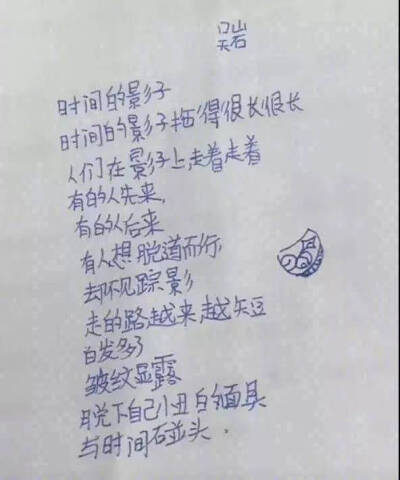 吴岩
时间的影子
时间的影子拖得很长很长
人们在影子上走着走着
有的人先来,
有的人后来
有人想脱道而行,
却不见踪影
走的路越来越短
白发多了
皱纹显露
脱下自己小丑的面具
与时间碰头.